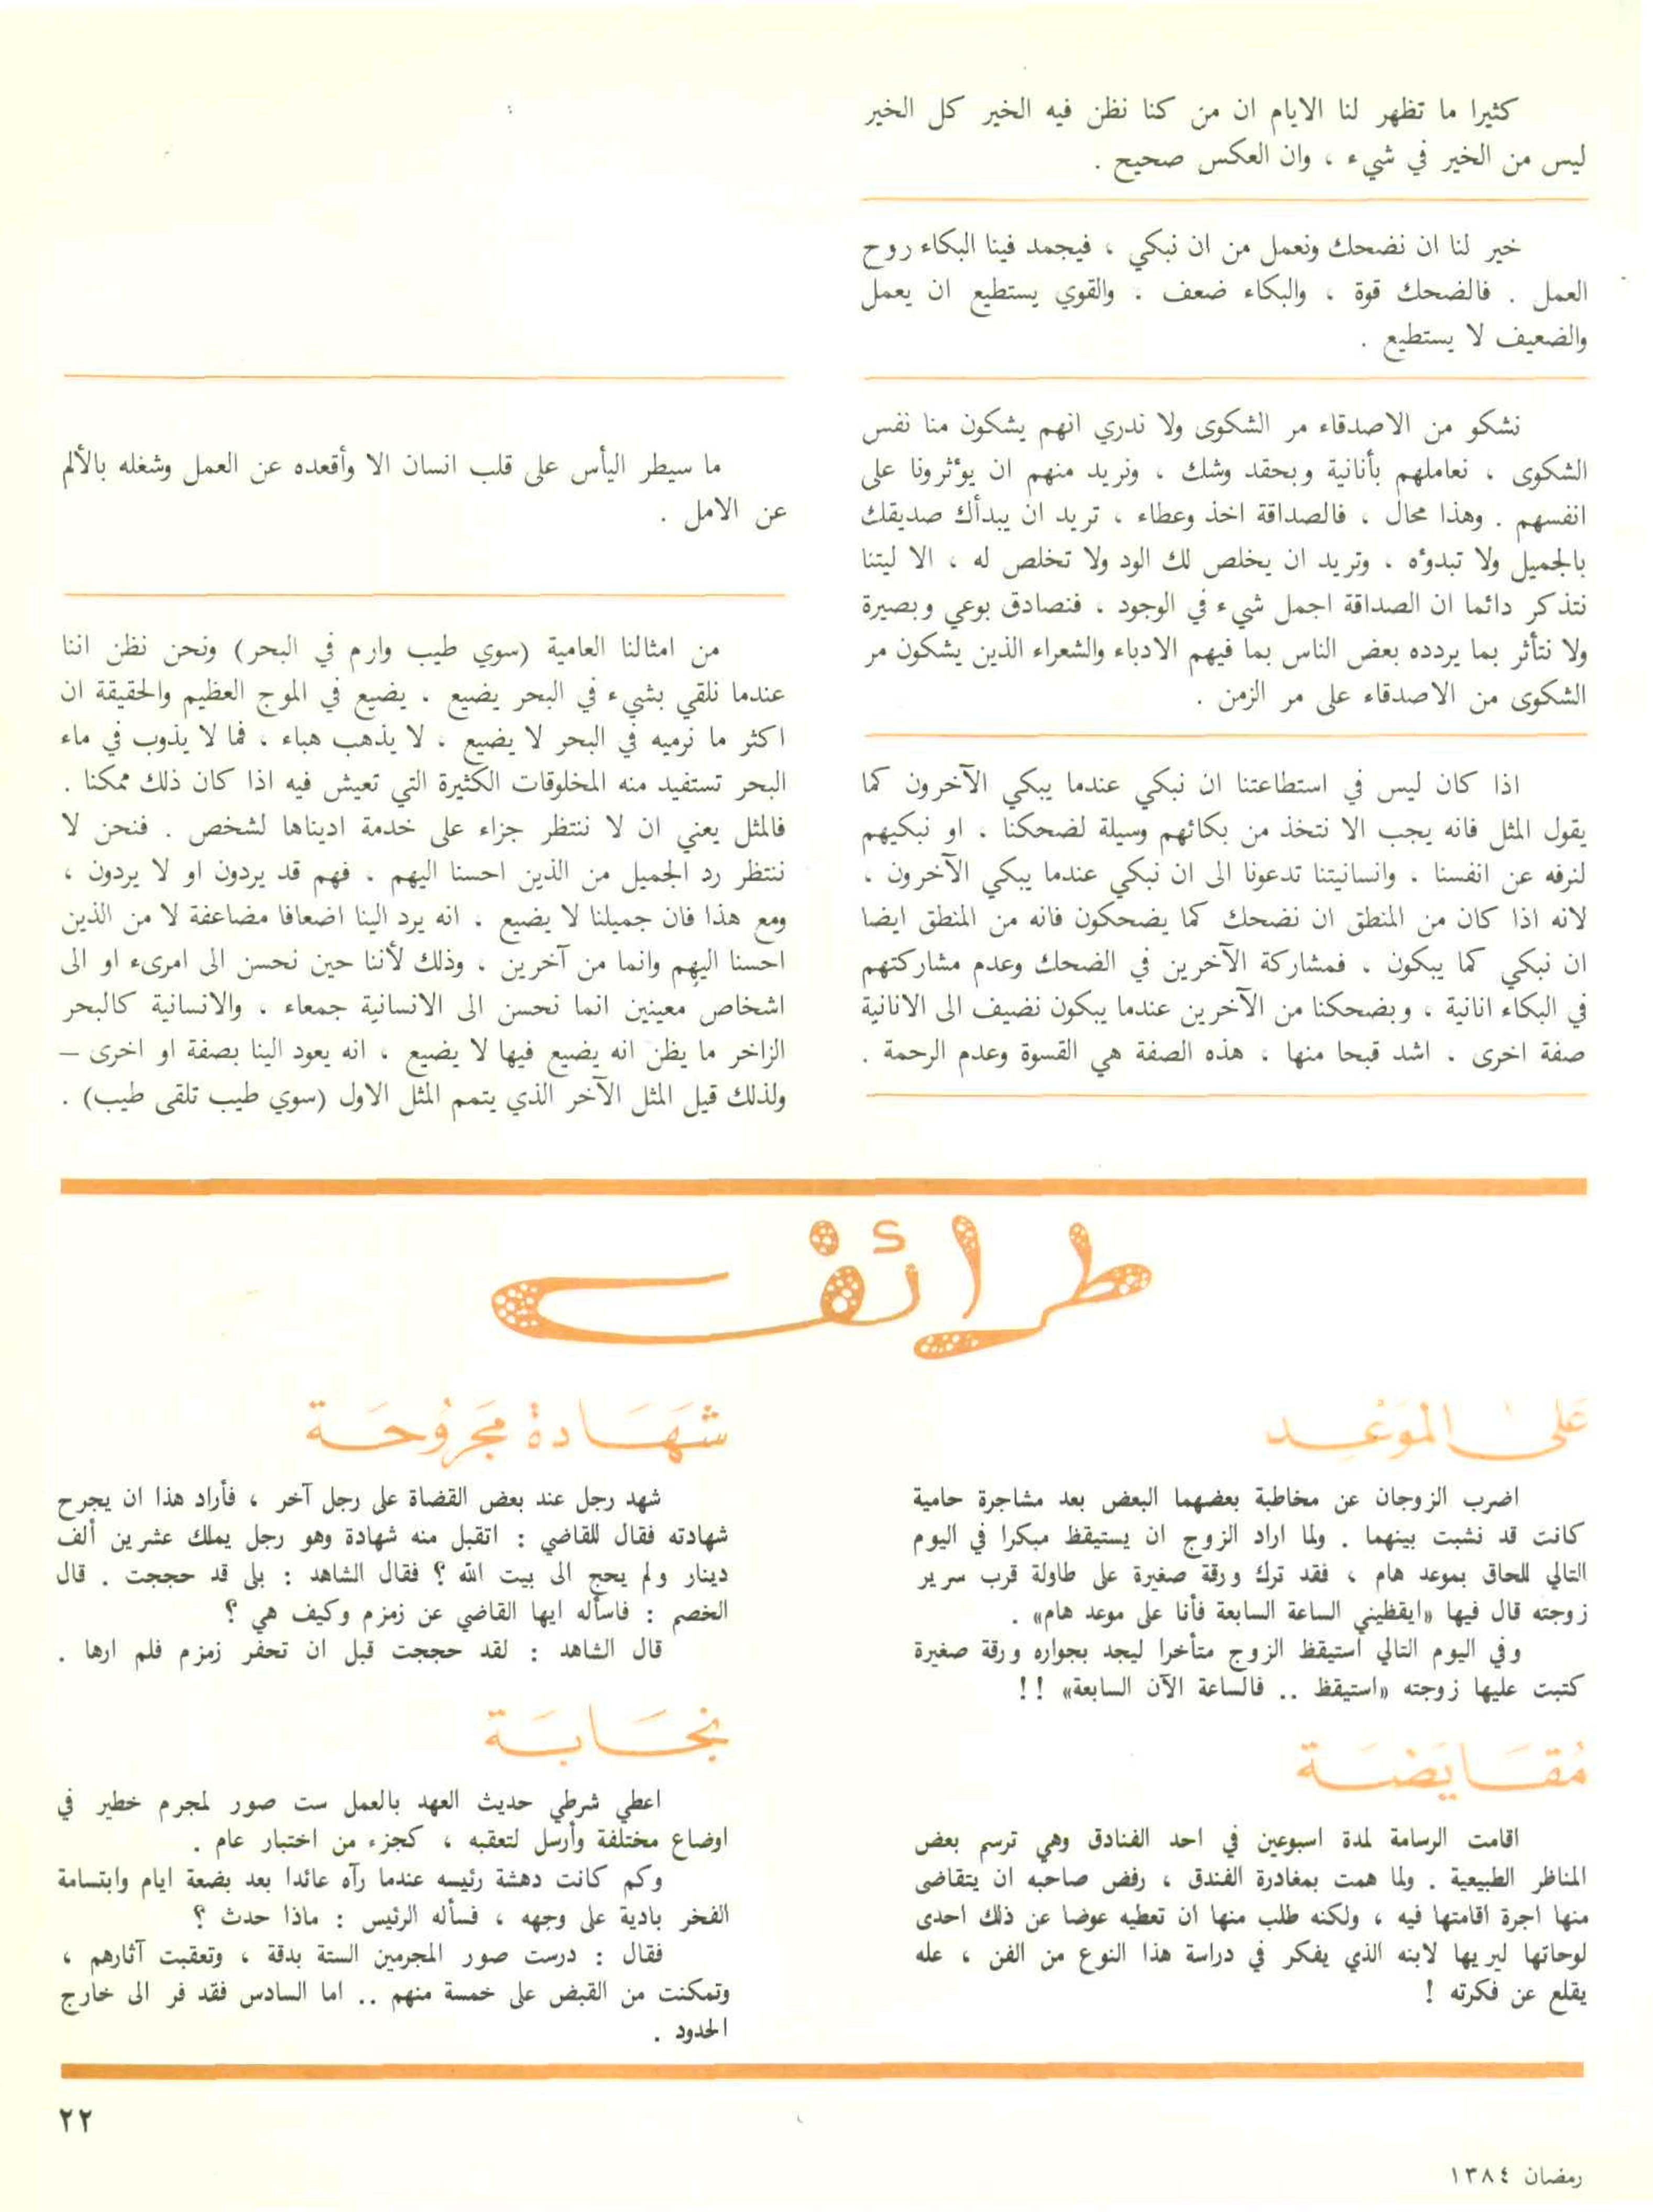 كثيرا ما تظهر لنا الايام ان من كنا نظن فيه الخير كل الخير
ليس من الخير في شيء ، وان العكس صحيح .
خير لنا ان نضحك ونعمل من ان نبكي ، فيجمد فينا البكاء روح
العمل . فالضحك قوة ، والبكاء ضعف . والقوي يستطيع ان يعمل
والضعيف لا يستطيع .
نشكو من الاصدقاء مر الشكوى ولا ندري انهم يشكون منا نفس
الشكوى ، نعاملهم بأنانية وبحقد وشك ، ونريد منهم ان يؤثرونا على
انفسهم . وهذا محال ، فالصداقة اخذ وعطاء ، تريد ان يبدأك صديقك
بالجميل ولا تبدوءه ، وتريد ان يخلص لك الود ولا تخلص له ، الا ليتنا
نتذكر دائما ان الصداقة اجمل شيء في الوجود ، فنصادق بوعي وبصيرة
ولا نتأثر بما يردده بعض الناس بما فيهم الادباء والشعراء الذين يشكون مر
الشكوى من الاصدقاء على مر الزمن .
اذا كان ليس في استطاعتنا ان نبكي عندما يبكي الآخرون كما
يقول المثل فانه يجب الا نتخذ من بكائهم وسيلة لضحكنا ، او نبكيهم
لنرفه عن انفسنا ، وانسانيتنا تدعونا الى ان نبكي عندما يبكي الآخرون ،
لانه اذا كان من المنطق ان نضحك كما يضحكون فانه من المنطق ايضا
ان نبكي كما يبكون ، فمشاركة الآخرين في الضحك وعدم مشاركتهم
في البكاء انانية ، وبضحكنا من الآخرين عندما يبكون نضيف الى الانانية
صفة اخرى ، اشد قبحا منها ، هذه الصفة هي القسوة وعدم الرحمة .
ما سيطر اليأس على قلب انسان الا وأقعده عن العمل وشغله بالألم
عن الامل .
من امثالنا العامية (سوي طيب وارم في البحر) ونحن نظن اننا
عندما نلقي بشيء في البحر يضيع ، يضيع في الموج العظيم والحقيقة ان
اكثر ما نرميه في البحر لا يضيع ، لا يذهب هباء ، فما لا يذوب في ماء
البحر تستفيد منه المخلوقات الكثيرة التي تعيش فيه اذا كان ذلك ممكنا .
فالمثل يعني ان لا ننتظر جزاء على خدمة اديناها لشخص . فنحن لا
ننتظر رد الجميل من الذين احسنا اليهم ، فهم قد يردون او لا يردون ،
ومع هذا فان جميلنا لا يضيع ، انه يرد الينا اضعافا مضاعفة لا من الذين
احسنا اليهم وانما من آخرين ، وذلك لأننا حين نحسن الى امرىء او الى
اشخاص معينين انما نحسن الى الانسانية جمعاء ، والانسانية كالبحر
الزاخر ما يظن انه يضيع فيها لا يضيع ، انه يعود الينا بصفة او اخرى –
ولذلك قيل المثل الآخر الذي يتمم المثل الاول (سوي طيب تلقى طيب) .
طرائف
عَلى المَوْعِد
اضرب الزوجان عن مخاطبة بعضهما البعض بعد مشاجرة حامية
كانت قد نشبت بينهما . ولما اراد الزوج ان يستيقظ مبكرا في اليوم
التالي للحاق بموعد هام ، فقد ترك ورقة صغيرة على طاولة قرب سرير
زوجته قال فيها «ايقظيني الساعة السابعة فأنا على موعد هام» .
وفي اليوم التالي استيقظ الزوج متأخرا ليجد بجواره ورقة صغيرة
كتبت عليها زوجته «استيقظ .. فالساعة الآن السابعة» !!
مُقَايَضَة
اقامت الرسامة لمدة اسبوعين في احد الفنادق وهي ترسم بعض
المناظر الطبيعية . ولما همت بمغادرة الفندق ، رفض صاحبه ان يتقاضى
منها اجرة اقامتها فيه ، ولكنه طلب منها ان تعطيه عوضا عن ذلك احدى
لوحاتها ليريها لابنه الذي يفكر في دراسة هذا النوع من الفن ، عله
يقلع عن فكرته !
شَهَادة مَجرُوحَة
شهد رجل عند بعض القضاة على رجل آخر ، فأراد هذا ان يجرح
شهادته فقال للقاضي : اتقبل منه شهادة وهو رجل يملك عشرين ألف
دينار ولم يحج الى بيت الله ؟ فقال الشاهد : بلى قد حججت . قال
الخصم : فاسأله ايها القاضي عن زمزم وكيف هي ؟
قال الشاهد : لقد حججت قبل ان تحفر زمزم فلم ارها .
نجَابَة
اعطي شرطي حديث العهد بالعمل ست صور لمجرم خطير في
اوضاع مختلفة وأرسل لتعقبه ، كجزء من اختبار عام .
وكم كانت دهشة رئيسه عندما رآه عائدا بعد بضعة ايام وابتسامة
الفخر بادية على وجهه ، فسأله الرئيس : ماذا حدث ؟
فقال : درست صور المجرمين الستة بدقة ، وتعقبت آثارهم ،
وتمكنت من القبض على خمسة منهم .. اما السادس فقد فر الى خارج
الحدود .
٢٢
رمضان ١٣٨٤